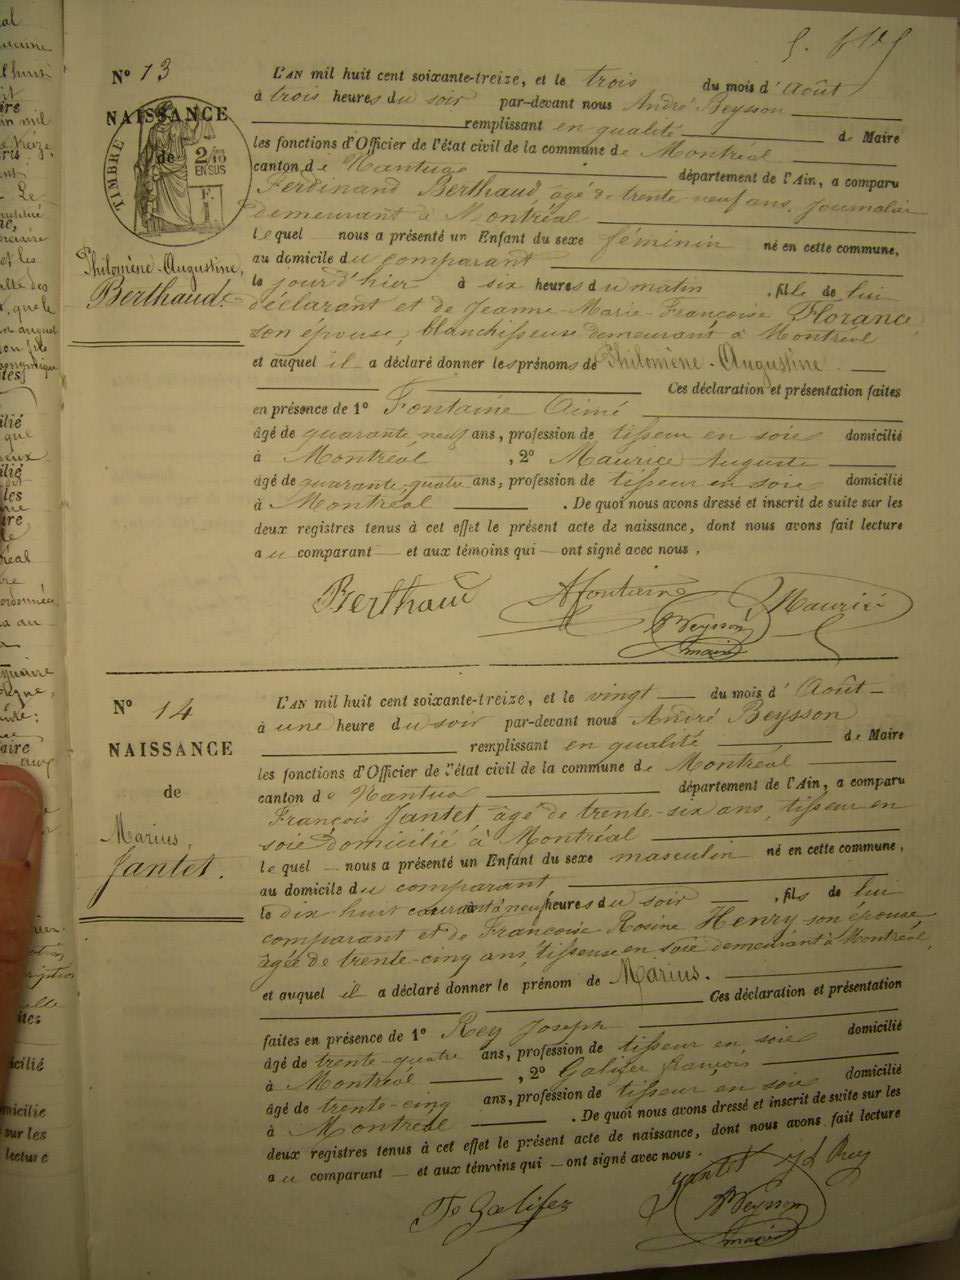 N° 13
NAISSANCE
de
TIMBRE
2/10
EN SUS
Philomène-Augustine,
Berthaud.
L'AN mil huit cent soixante-treize, et le trois du mois d'Août
à trois heures du soir par-devant nous André Beysson
remplissant en qualité de Maire
les fonctions d'Officier de l'état civil de la commune de Montréal
canton de Nantua département de l'Ain, a comparu
Ferdinand Berthaud, âgé de trente-neuf ans, journalier
demeurant à Montréal
lequel nous a présenté un Enfant du sexe féminin né en cette commune,
au domicile du comparant
le jour d'hier à six heures du matin, fille de lui
déclarant et de Jeanne-Marie-Françoise Florance
son épouse, blanchisseuse demeurant à Montréal
et auquel il a déclaré donner les prénoms de Philomène-Augustine
Ces déclaration et présentation faites
en présence de 1° Fontaine Aimé
âgé de quarante neuf ans, profession de tisseur en soie domicilié
à Montréal, 2° Maurice Auguste
âgé de quarante quatre ans, profession de tisseur en soie domicilié
à Montréal. De quoi nous avons dressé et inscrit de suite sur les
deux registres tenus à cet effet le présent acte de naissance, dont nous avons fait lecture
au comparant et aux témoins qui ont signé avec nous.
Berthaud A Fontaine Maurice
Beysson
maire
N° 14
NAISSANCE
de
Marius,
Jantet.
L'AN mil huit cent soixante-treize, et le vingt du mois d'Août
à une heure du soir par-devant nous André Beysson
remplissant en qualité de Maire
les fonctions d'Officier de l'état civil de la commune de Montréal
canton de Nantua département de l'Ain, a comparu
François Jantet, âgé de trente-six ans, tisseur en
soie domicilié à Montréal
lequel nous a présenté un Enfant du sexe masculin né en cette commune,
au domicile du comparant
le dix-huit courant à neuf heures du soir, fils de lui
comparant et de Françoise Rosine Henry son épouse,
âgée de trente-cinq ans, tisseuse en soie demeurant à Montréal,
et auquel il a déclaré donner le prénom de Marius.
Ces déclaration et présentation
faites en présence de 1° Rey Joseph
âgé de trente-quatre ans, profession de tisseur en soie domicilié
à Montréal, 2° Galifer françois
âgé de trente-cinq ans, profession de tisseur en soie domicilié
à Montréal. De quoi nous avons dressé et inscrit de suite sur les
deux registres tenus à cet effet le présent acte de naissance, dont nous avons fait lecture
au comparant et aux témoins qui ont signé avec nous.
Jantet Rey
Galifer Beysson
maire